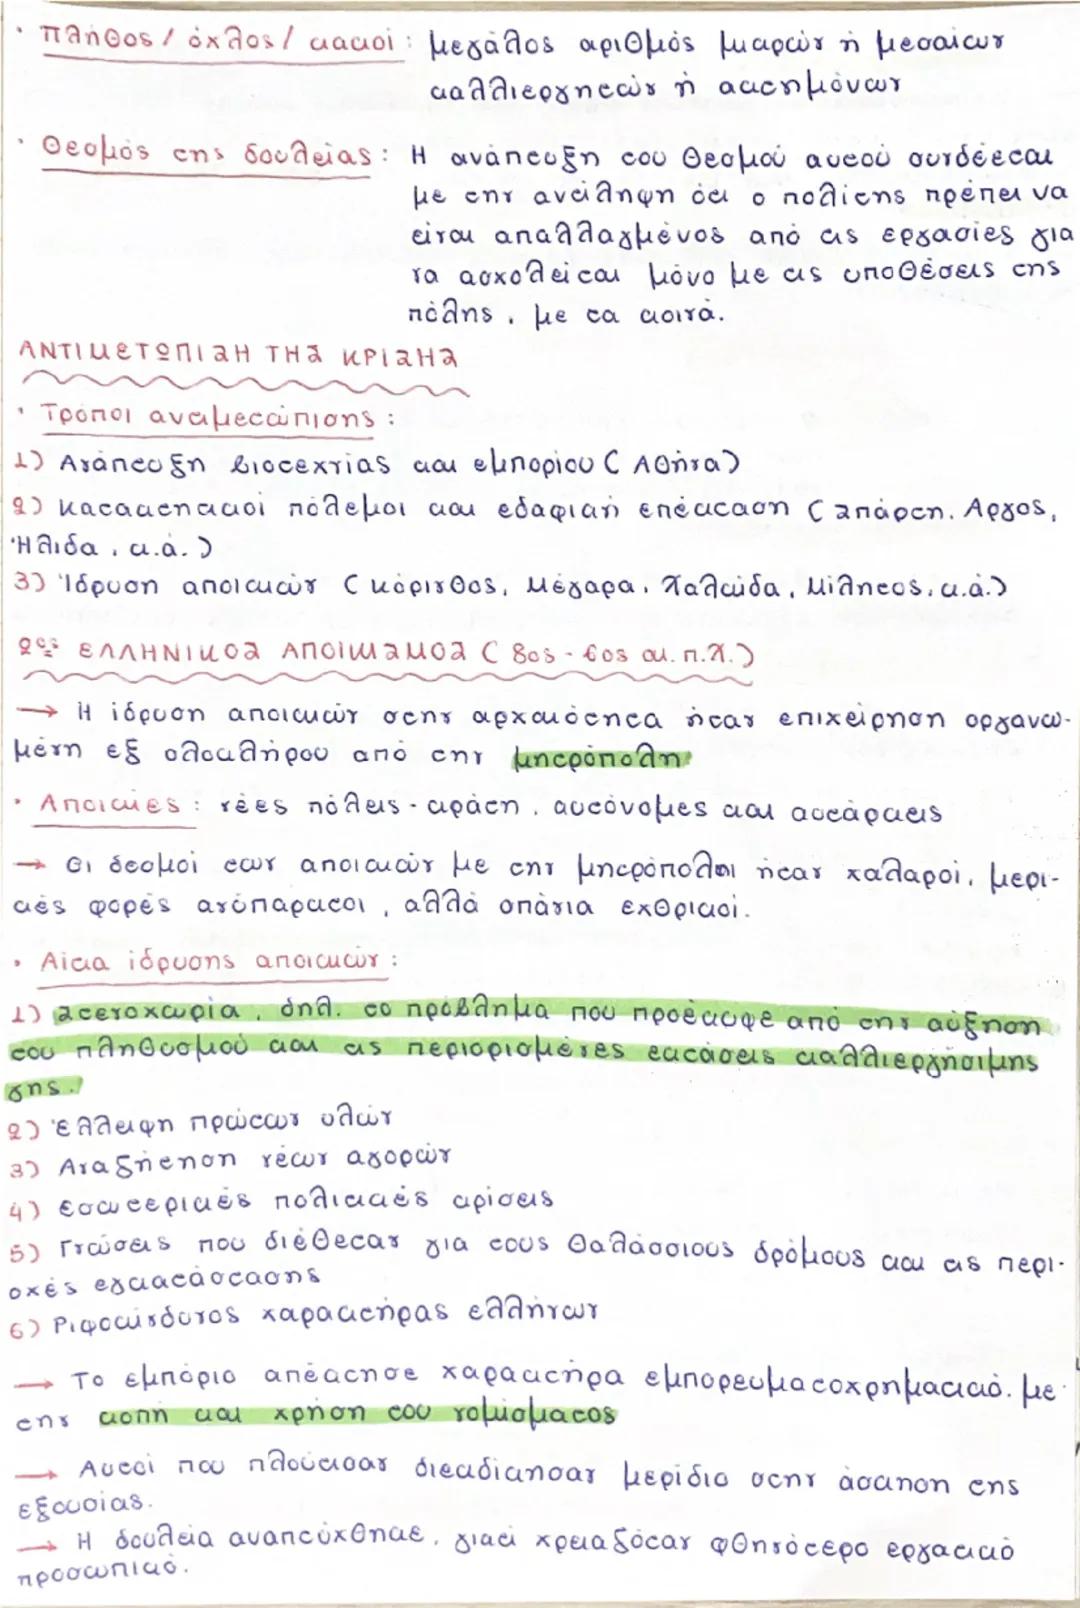 • Πλήθος / όχλος / κακοί : μεγάλος αριθμός μικρών ή μεσαίων
καλλιεργητών ή ακτημόνων
• Θεσμός της δουλείας : Η ανάπτυξη του θεσμού αυτού συνδέεται
με την αντίληψη ότι ο πολίτης πρέπει να
είναι απαλλαγμένος από τις εργασίες για
να ασχολείται μόνο με τις υποθέσεις της
πόλης, με τα κοινά.
ΑΝΤΙΜΕΤΩΠΙΣΗ ΤΗΣ ΚΡΙΣΗΣ
• Τρόποι αντιμετώπισης :
1) Ανάπτυξη βιοτεχνίας και εμπορίου (Αθήνα)
2) Κατακτητικοί πόλεμοι και εδαφική επέκταση (Σπάρτη, Άργος,
Ήλιδα, κ.ά.)
3) Ίδρυση αποικιών (Κόρινθος, Μέγαρα, Χαλκίδα, Μίλητος, κ.ά.)
2ος ΕΛΛΗΝΙΚΟΣ ΑΠΟΙΚΙΣΜΟΣ (8ος - 6ος αι. π.Χ.)
→ Η ίδρυση αποικιών στην αρχαιότητα ήταν επιχείρηση οργανω-
μένη εξ ολοκλήρου από την μητρόπολη
• Αποικίες : νέες πόλεις - κράτη, αυτόνομες και αυτάρκεις
→ Οι δεσμοί των αποικιών με την μητρόπολη ήταν χαλαροί, μερι-
κές φορές ανύπαρκτοι, αλλά σπάνια εχθρικοί.
• Αίτια ίδρυσης αποικιών :
1) Στενοχωρία, δηλ. το πρόβλημα που προέκυψε από την αύξηση
του πληθυσμού και τις περιορισμένες εκτάσεις καλλιεργήσιμης
γης.
2) Έλλειψη πρώτων υλών
3) Αναζήτηση νέων αγορών
4) Εσωτερικές πολιτικές κρίσεις
5) Γνώσεις που διέθεταν για τους θαλάσσιους δρόμους και τις περι-
οχές εγκατάστασης
6) Ριψοκίνδυνος χαρακτήρας ελλήνων
→ Το εμπόριο απέκτησε χαρακτήρα εμπορευματοχρηματικό, με
την κοπή και χρήση του νομίσματος
→ Αυτοί που πλούτισαν διεκδίκησαν μερίδιο στην άσκηση της
εξουσίας.
→ Η δουλεία αναπτύχθηκε, γιατί χρειαζόταν φθηνότερο εργατικό
προσωπικό.